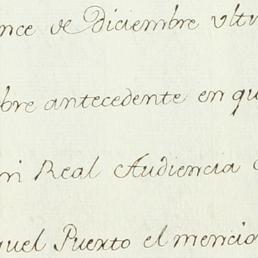 nce de Diciembre ultí
bre antecedente en qu
mi Real Audiencia
quel Puerto el mencio